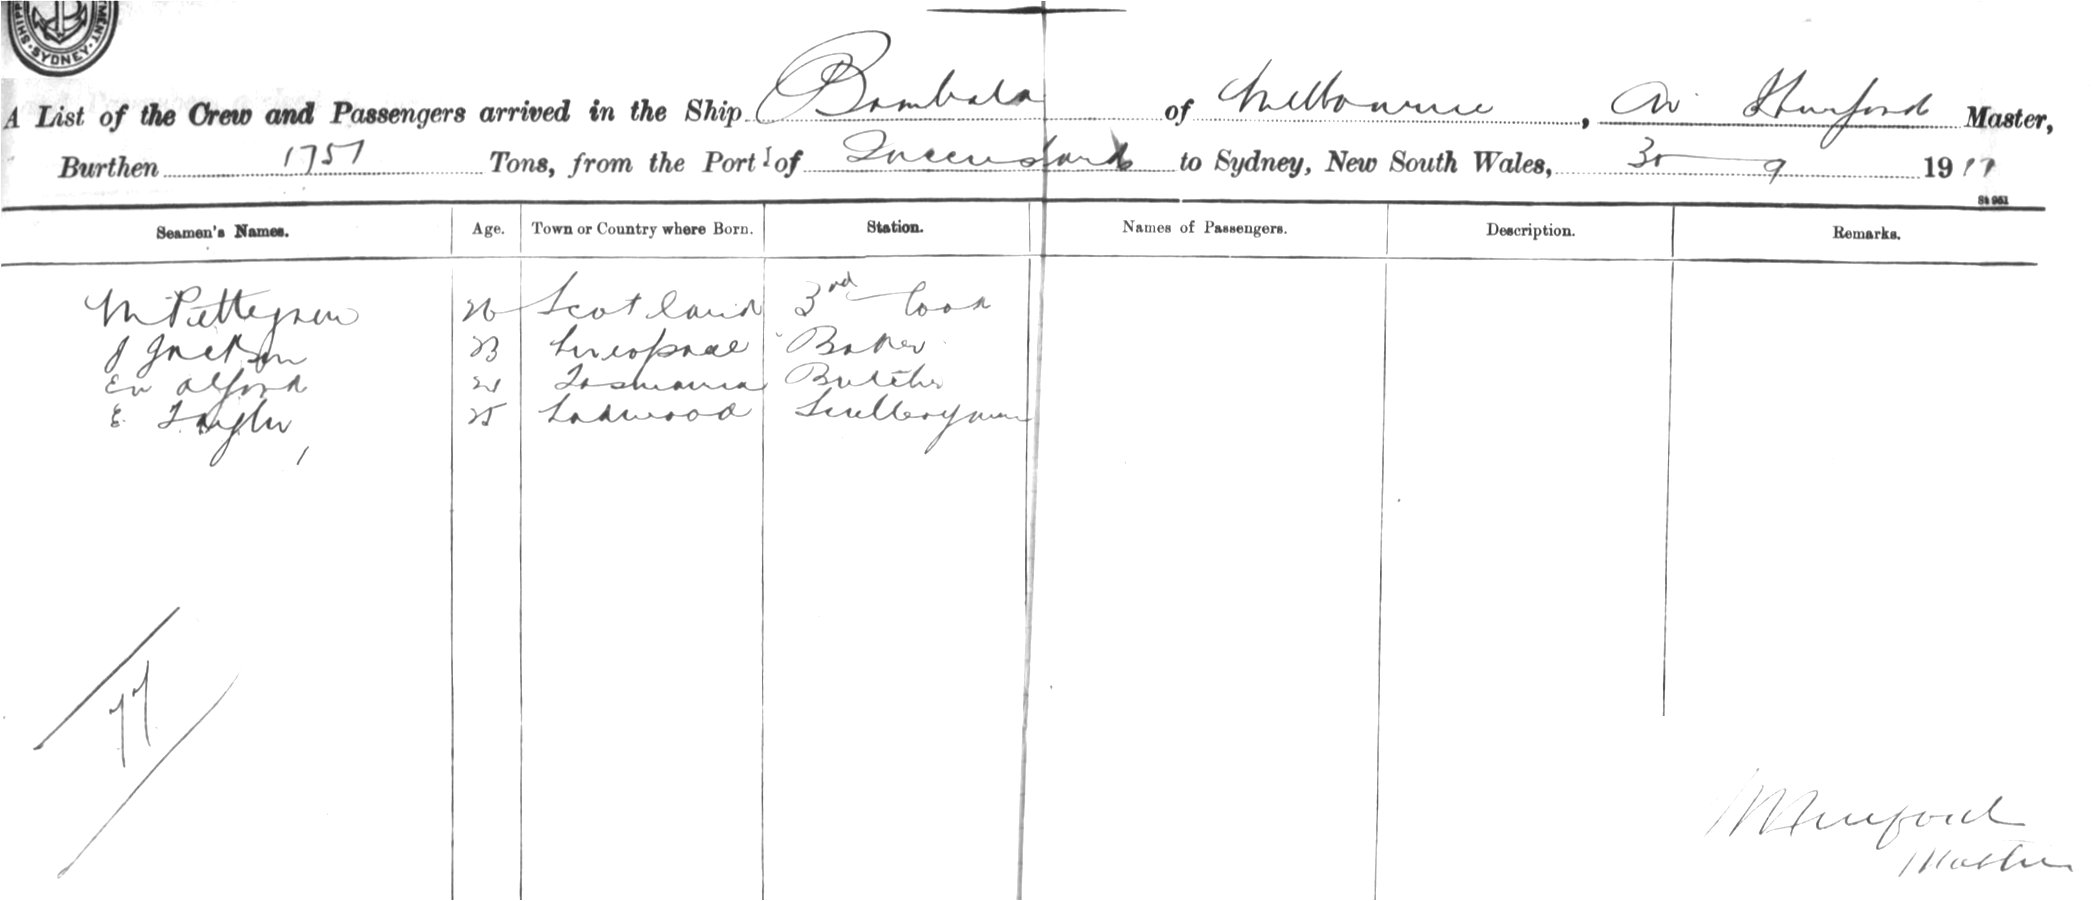 SYDNEY
A List of the Crew and Passengers arrived in the Ship Bombala of Melbourne, W Hurford Master,
Burthen 1757 Tons, from the Port of Queensland to Sydney, New South Wales, 30 9 1917
St 951
Seamen's Names. Age. Town or Country where Born. Station. Names of Passengers. Description. Remarks.
M Pettegrew 26 Scotland 3rd Cook
J Jackson 23 Liverpool Baker
EW Alford 21 Tasmania Butcher
E Taylor 25 Sculleryman
77
W Hurford
Master